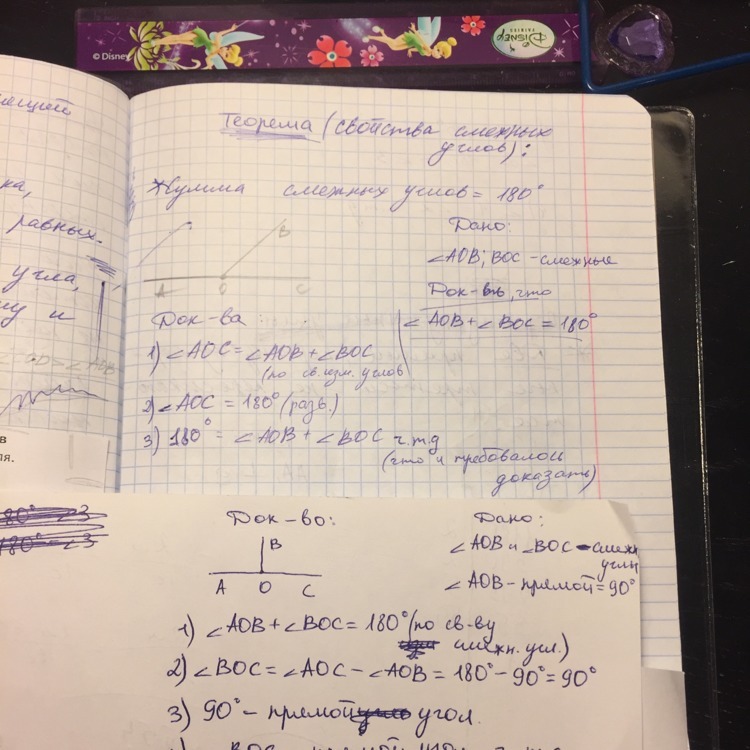 © Disney
DISNEY
FAIRIES
ка,
равных.
угла,
му и
в
ля.
Теорема (свойства смежных
углов):
*Сумма смежных углов = 180°
B
A O C
Дано:
∠AOB; BOC - смежные
Док-ть, что
∠AOB + ∠BOC = 180°
Док-ва:
1) ∠AOC = ∠AOB + ∠BOC
(по св. изм. углов)
2) ∠AOC = 180° (разв.)
3) 180° = ∠AOB + ∠BOC ч.т.д
(что и требовалось
доказать)
Док-во:
B
A O C
Дано:
∠AOB и ∠BOC - смежн
углы
∠AOB - прямой = 90°
1) ∠AOB + ∠BOC = 180° (по св-ву
смежн. угл.)
2) ∠BOC = ∠AOC - ∠AOB = 180° - 90° = 90°
3) 90° - прямой угол.